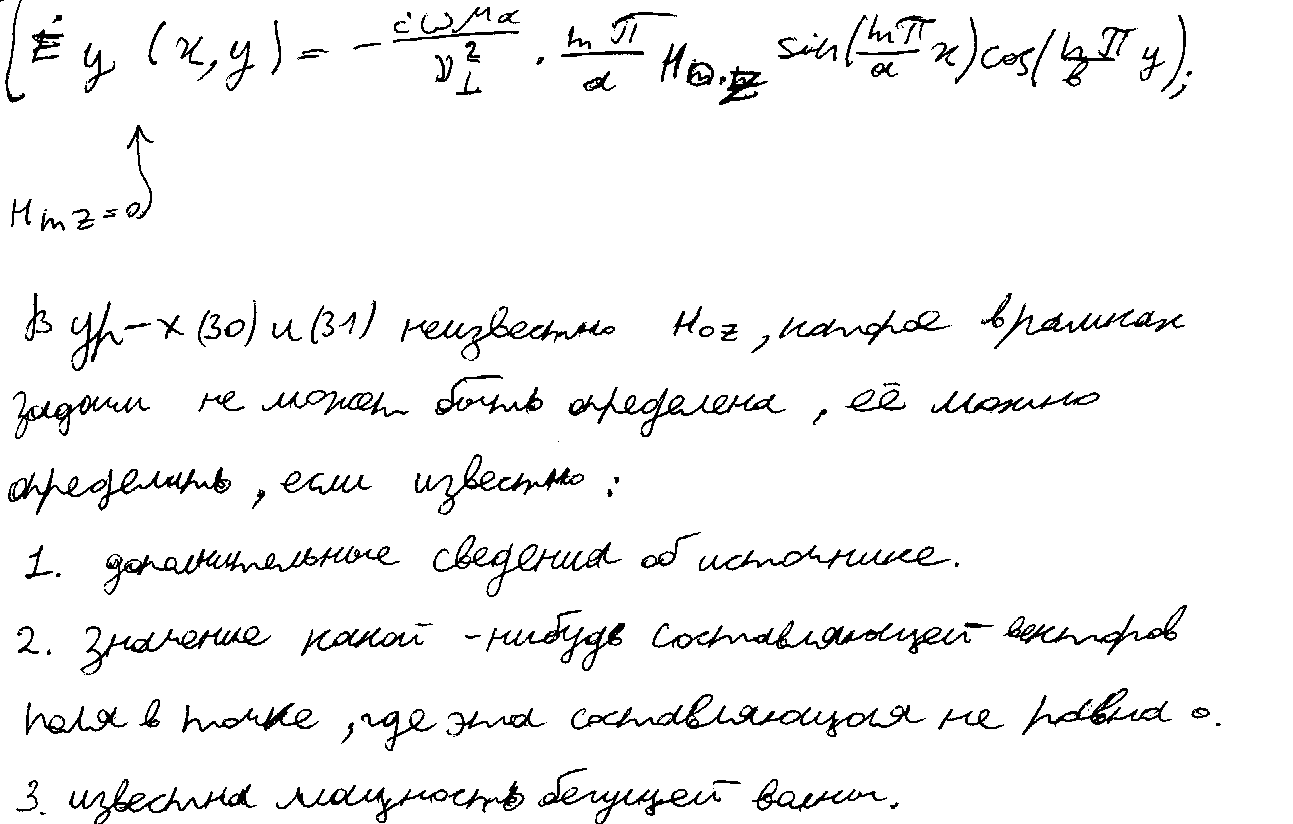 Ė y (x, y) = - iωμa / ν⊥² · mπ/a H₀z sin(mπ/a x) cos(nπ/b y);
Hmz=0
В ур-х (30) и (31) неизвестно H₀z, которое в рамках
задачи не может быть определена, её можно
определить, если известно:
1. дополнительные сведения об источнике.
2. Значение какой-нибудь составляющей векторов
поля в точке, где эта составляющая не равна 0.
3. известна мощность бегущей волны.